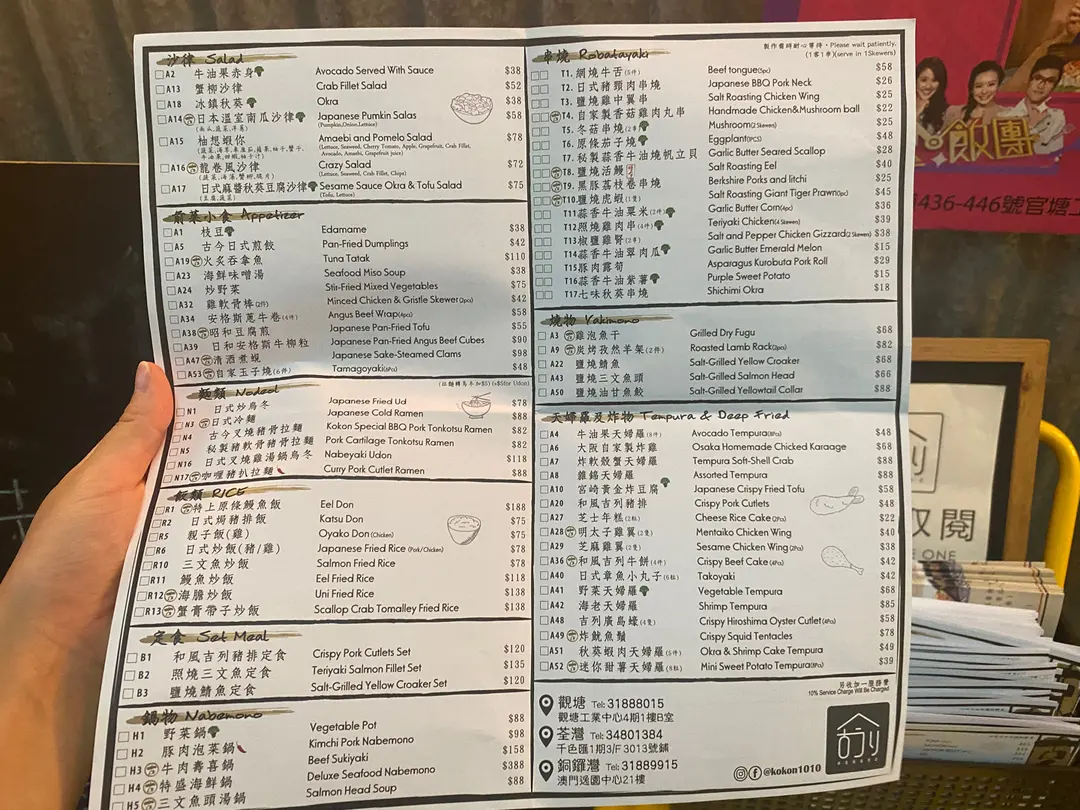 沙律 Salad
A2 牛油果赤身 Avocado Served With Sauce $38
A13 蟹柳沙律 Crab Fillet Salad $52
A18 冰鎮秋葵 Okra $38
A14 日本溫室南瓜沙律 Japanese Pumkin Salas $58
(Pumpkin,Onion,Lettuce)
A15 柚想蝦你 Amaebi and Pomelo Salad $78
(Lettuce, Seaweed, Cherry Tomato, Apple, Grapefruit, Crab Fillet,
Avocado, Amashi, Grapefruit juice)
A16 龍卷風沙律 Crazy Salad $72
(Lettuce, Seaweed, Crab Fillet, Chips)
A17 日式麻醬秋葵豆腐沙律 Sesame Sauce Okra & Tofu Salad $75
(Tofu, Lettuce)
前菜小食 Appetizer
A1 枝豆 Edamame $38
A5 古今日式煎餃 Pan-Fried Dumplings $42
A19 火炙吞拿魚 Tuna Tatak $110
A23 海鮮味噌湯 Seafood Miso Soup $38
A24 炒野菜 Stir-Fried Mixed Vegetables $75
A32 雞軟骨棒(2件) Minced Chicken & Gristle Skewer(2pcs) $42
A34 安格斯蔥牛卷(4件) Angus Beef Wrap(4pcs) $58
A38 昭和豆腐煎 Japanese Pan-Fried Tofu $55
A39 日和安格斯牛柳粒 Japanese Pan-Fried Angus Beef Cubes $90
A47 清酒煮蜆 Japanese Sake-Steamed Clams $98
A53 自家玉子燒(6件) Tamagoyaki(6Pcs) $48
麵類 Nodeol
(拉麵轉烏冬加$5) (+$5for Udon)
N1 日式炒烏冬 Japanese Fried Ud $78
N3 日式冷麵 Japanese Cold Ramen $88
N4 古今叉燒豬骨拉麵 Kokon Special BBQ Pork Tonkotsu Ramen $82
N5 秘製豬軟骨豬骨拉麵 Pork Cartilage Tonkotsu Ramen $82
N16 日式叉燒雞湯鍋烏冬 Nabeyaki Udon $118
N17 咖喱豬扒拉麵 Curry Pork Cutlet Ramen $88
飯類 RICE
R1 特上原條鰻魚飯 Eel Don $188
R2 日式焗豬排飯 Katsu Don $75
R5 親子飯(雞) Oyako Don(Chicken) $75
R6 日式炒飯(豬/雞) Japanese Fried Rice (Pork/Chicken) $78
R10 三文魚炒飯 Salmon Fried Rice $78
R11 鰻魚炒飯 Eel Fried Rice $118
R12 海膽炒飯 Uni Fried Rice $138
R13 蟹膏帶子炒飯 Scallop Crab Tomalley Fried Rice $138
定食 Set Meal
B1 和風吉列豬排定食 Crispy Pork Cutlets Set $120
B2 照燒三文魚定食 Teriyaki Salmon Fillet Set $135
B3 鹽燒鯖魚定食 Salt-Grilled Yellow Croaker Set $120
鍋物 Nabemono
H1 野菜鍋 Vegetable Pot $88
H2 豚肉泡菜鍋 Kimchi Pork Nabemono $98
H3 牛肉壽喜鍋 Beef Sukiyaki $158
H4 特盛海鮮鍋 Deluxe Seafood Nabemono $388
H5 三文魚頭湯鍋 Salmon Head Soup $88
串燒 Robatayaki
製作需時耐心等待，Please wait patiently.
(1客1串)(serve in 1Skewers)
T1. 網燒牛舌(5件) Beef tongue(5pc) $58
T2. 日式豬頸肉串燒 Japanese BBQ Pork Neck $26
T3. 鹽燒雞中翼串 Salt Roasting Chicken Wing $25
T4. 自家製香菇雞肉丸串 Handmade Chicken&Mushroom ball $22
T5. 冬菇串燒(2串) Mushroom(2 Skewers) $25
T6. 原條茄子燒 Eggplant(2Pc) $48
T7. 秘製蒜香牛油燒帆立貝 Garlic Butter Seared Scallop $28
T8. 鹽燒活鰻 Salt Roasting Eel $40
T9. 黑豚荔枝卷串燒 Berkshire Porks and litchi $25
T10. 鹽燒虎蝦(1隻) Salt Roasting Giant Tiger Prawn(1pc) $45
T11 蒜香牛油粟米(2件) Garlic Butter Corn(4pc) $36
T12 照燒雞肉串(4件) Teriyaki Chicken(4 Skewers) $39
T13 椒鹽雞腎(2串) Salt and Pepper Chicken Gizzard(2 Skewers) $38
T14 蒜香牛油翠肉瓜 Garlic Butter Emerald Melon $15
T15 豚肉露荀 Asparagus Kurobuta Pork Roll $29
T16 蒜香牛油紫薯 Purple Sweet Potato $15
T17 七味秋葵串燒 Shichimi Okra $18
燒物 Yakimono
A3 雞泡魚干 Grilled Dry Fugu $68
A9 炭烤孜然羊架(2件) Roasted Lamb Rack(2pcs) $82
A22 鹽燒鯖魚 Salt-Grilled Yellow Croaker $68
A43 鹽燒三文魚頭 Salt-Grilled Salmon Head $66
A50 鹽燒油甘魚鮫 Salt-Grilled Yellowtail Collar $88
天婦羅及炸物 Tempura & Deep Fried
A4 牛油果天婦羅(8件) Avocado Tempura(8Pcs) $48
A6 大阪自家製炸雞 Osaka Homemade Chicked Karaage $68
A7 炸軟殼蟹天婦羅 Tempura Soft-Shell Crab $88
A8 雜錦天婦羅 Assorted Tempura $88
A10 宮崎黃金炸豆腐 Japanese Crispy Fried Tofu $58
A20 和風吉列豬排 Crispy Pork Cutlets $48
A27 芝士年糕(2粒) Cheese Rice Cake(2Pcs) $22
A28 明太子雞翼(2隻) Mentaiko Chicken Wing $40
A29 芝麻雞翼(2隻) Sesame Chicken Wing(2Pcs) $38
A36 和風吉列牛餅(4件) Crispy Beef Cake(4Pcs) $42
A40 日式章魚小丸子(6粒) Takoyaki $42
A41 野菜天婦羅 Vegetable Tempura $68
A42 海老天婦羅 Shrimp Tempura $85
A48 吉列廣島蠔(4隻) Crispy Hiroshima Oyster Cutlet(4Pcs) $58
A49 炸魷魚鬚 Crispy Squid Tentacles $78
A51 秋葵蝦肉天婦羅(5件) Okra & Shrimp Cake Tempura $49
A52 迷你甜薯天婦羅(8粒) Mini Sweet Potato Tempura(8Pcs) $39
另收加一服務費
10% Service Charge Will Be Charged
觀塘 Tel: 31888015
觀塘工業中心4期1樓B室
荃灣 Tel: 34801384
千色匯1期3/F 3013號舖
銅鑼灣 Tel: 31889915
澳門逸園中心21樓
@kokon1010
KOKON
飯團
436-446號官塘工
取閱
E ONE